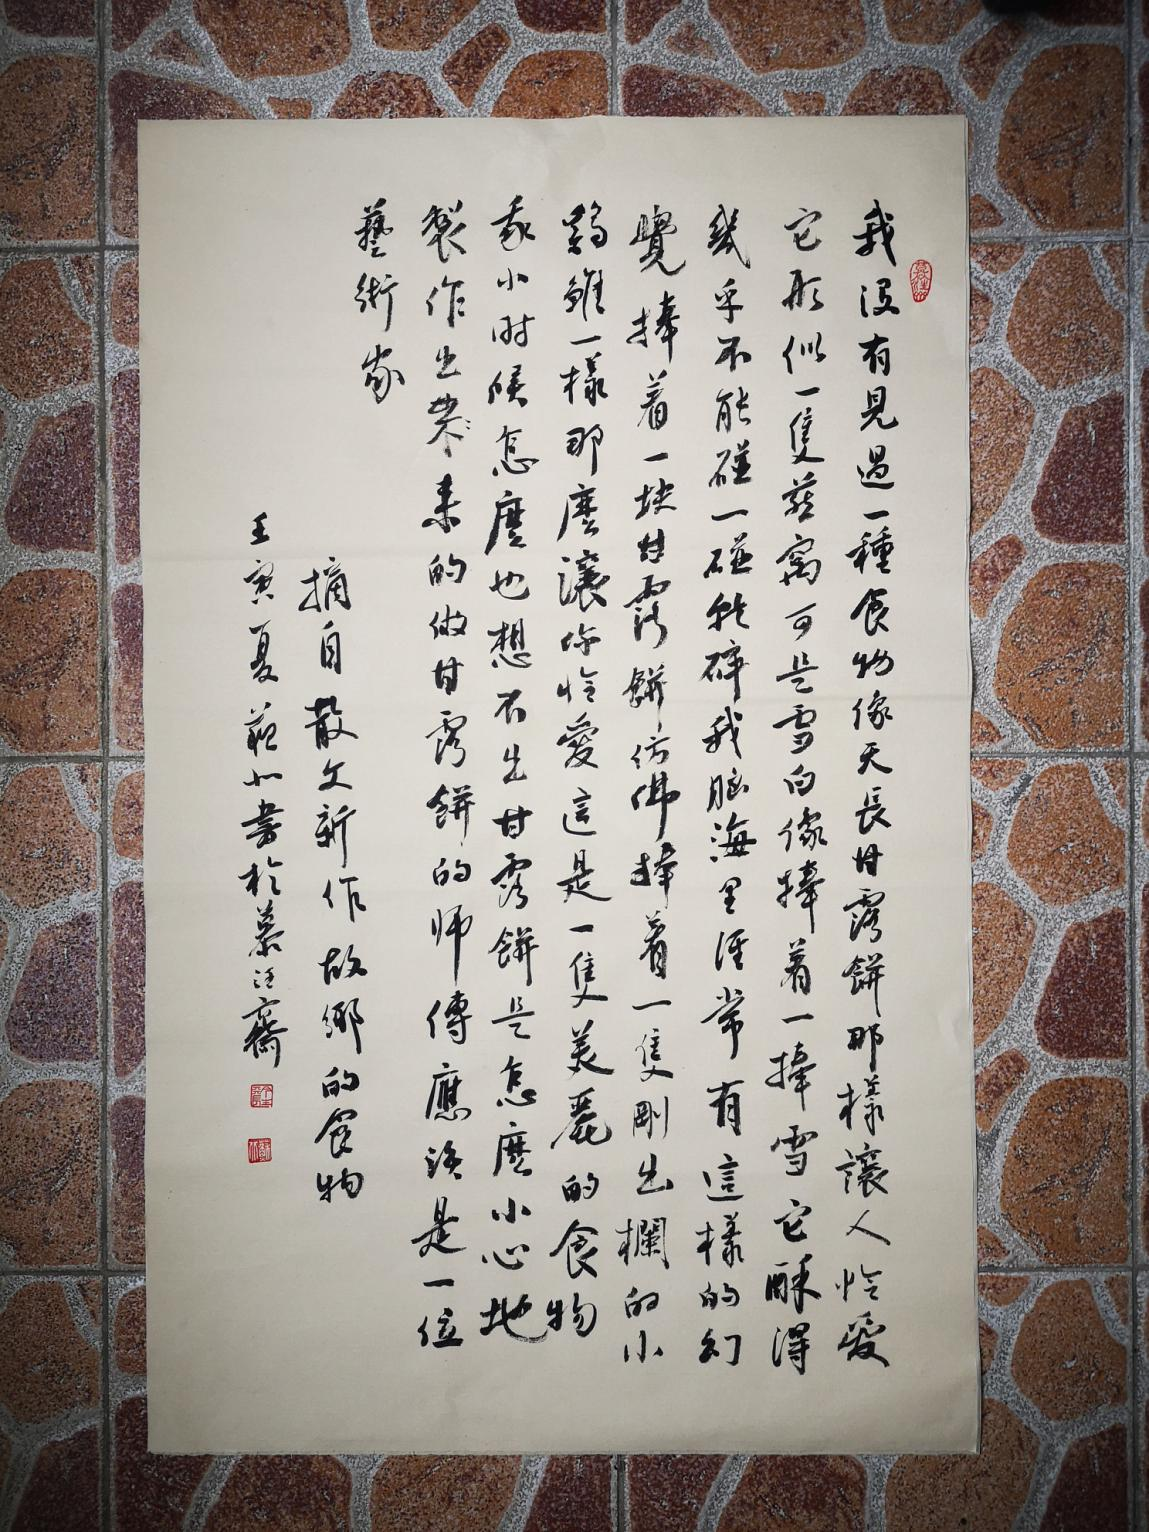 我没有見過一種食物像天長甘露餅那樣讓人怜愛
它形似一隻燕窩可是雪白像捧着一捧雪它酥得
幾乎不能碰一碰就碎我脑海里经常有這樣的幻
覺捧着一块甘露餅仿佛捧着一隻剛出欄的小
鷄雏一樣那麼讓你怜愛這是一隻美麗的食物
我小时候怎麼也想不出甘露餅是怎麼小心地
製作出来的做甘露餅的师傅應该是一位
藝術家
摘自散文新作故鄉的食物
壬寅夏蘇北書於慕汪齋